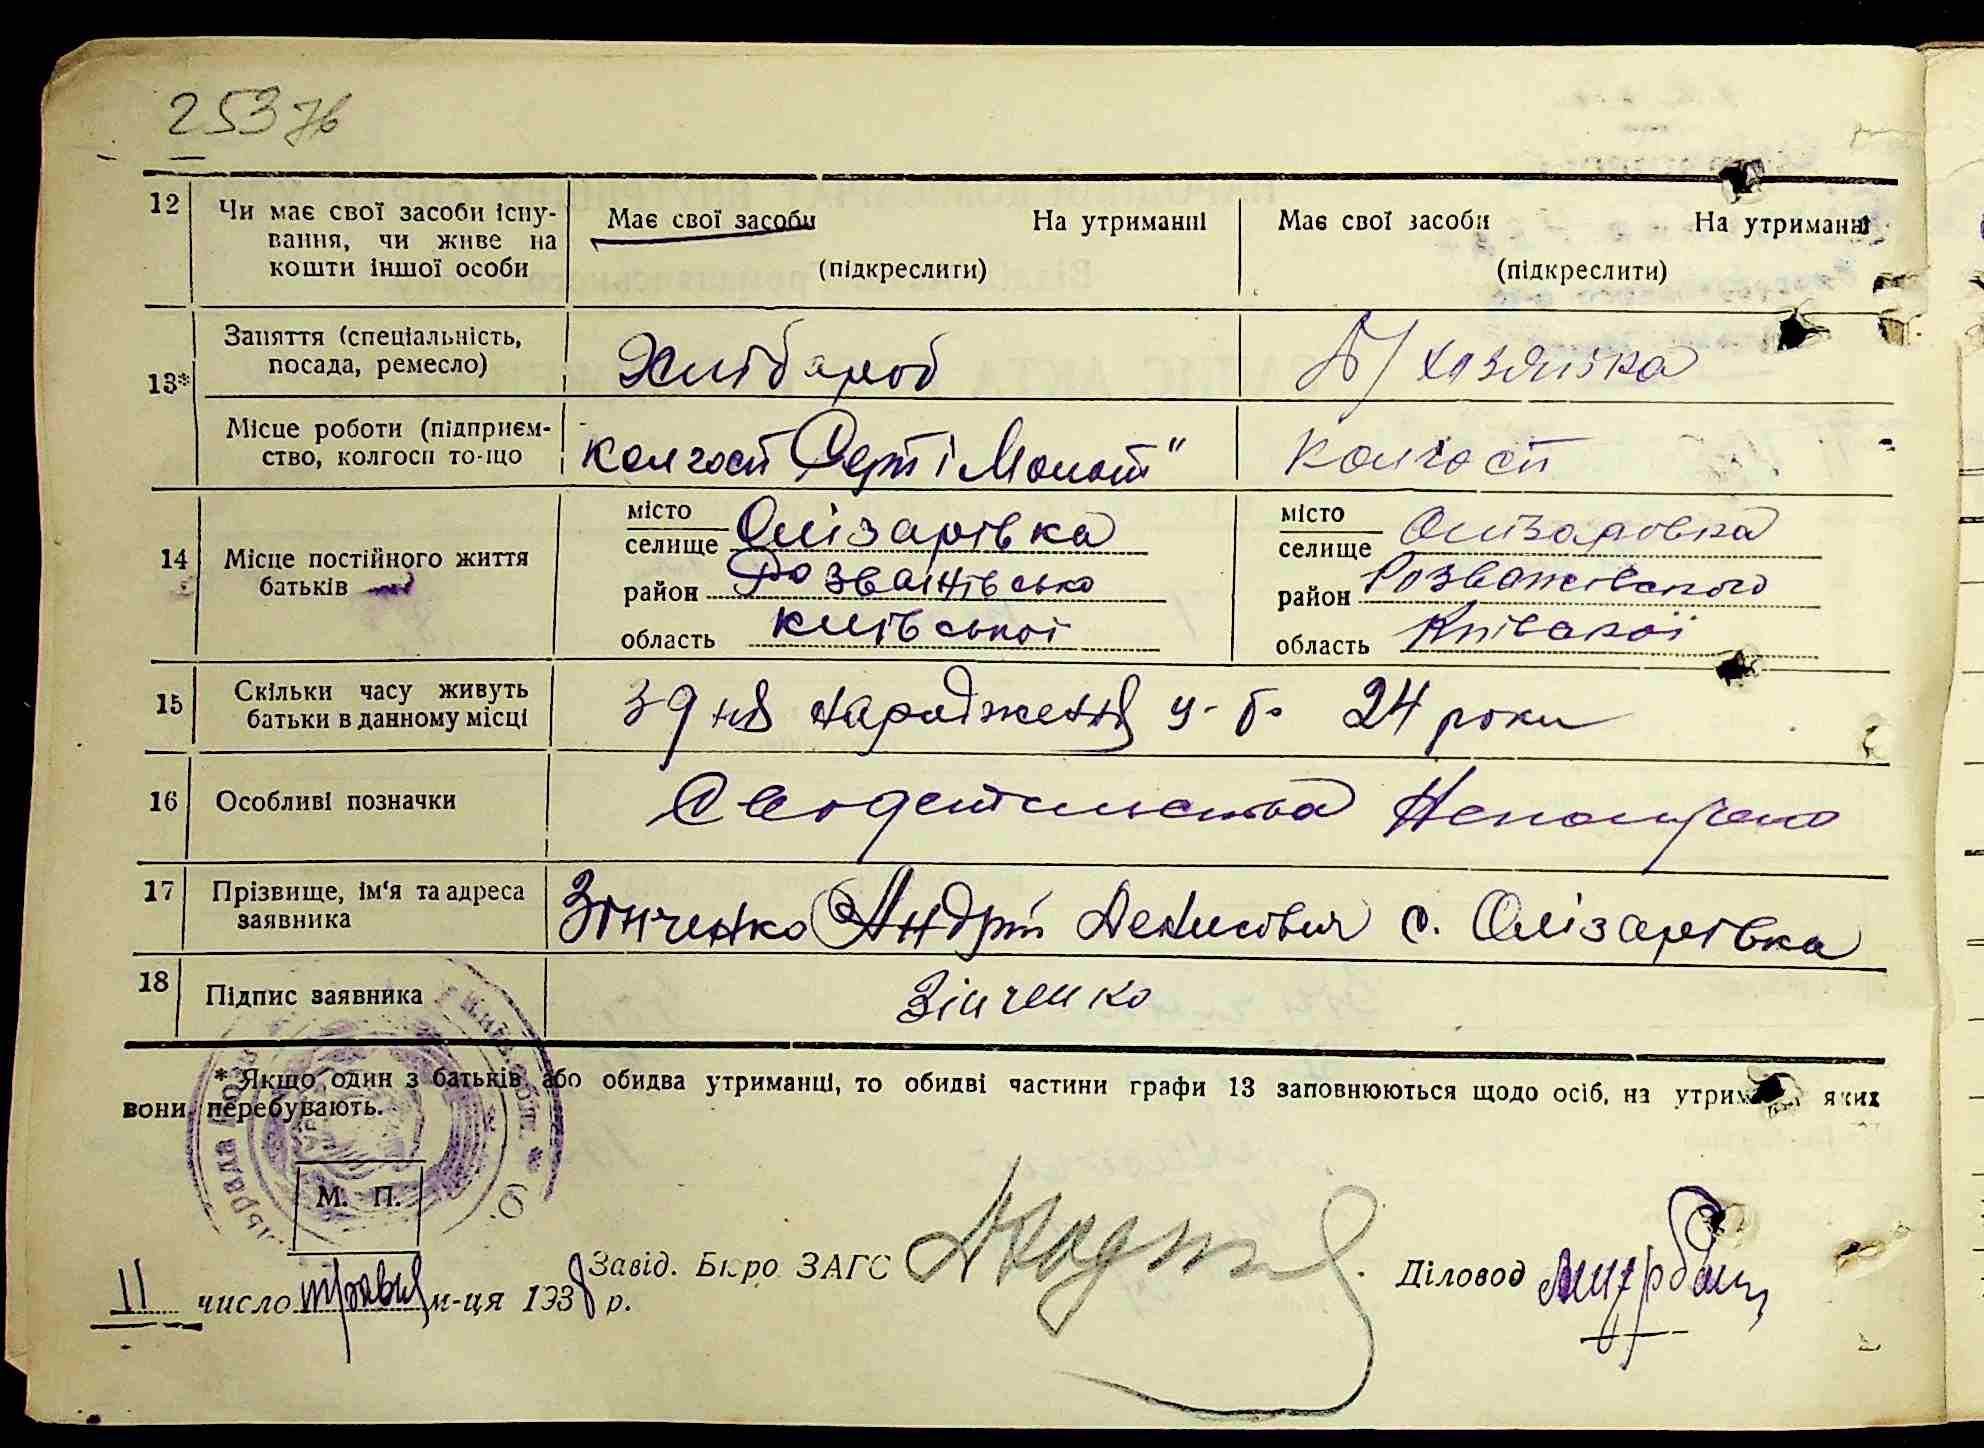 253 зв
12 Чи має свої засоби існу-
вання, чи живе на
кошти іншої особи
Має свої засоби На утриманні
(підкреслити)
Має свої засоби На утриманні
(підкреслити)
13* Заняття (спеціальність,
посада, ремесло)
Хлібароб
Д/хозяйка
Місце роботи (підприєм-
ство, колгосп то-що
колгосп Серп і Молот"
колгосп
14 Місце постійного життя
батьків
місто
селище Олізарівка
район Розважівсько
область київської
місто
селище Олізаровка
район Розважівского
область Київскої
15 Скільки часу живуть
батьки в данному місці
з дня народження у-б. 24 роки
16 Особливі позначки
17 Прізвище, ім'я та адреса
заявника
Зінченко Андрій Денисович с. Олізарівка
18 Підпис заявника
Зінченко
* Якщо один з батьків або обидва утриманці, то обидві частини графи 13 заповнюються щодо осіб, на яких
вони перебувають.
М. П.
Завід. Бюро ЗАГС
Діловод
11 число травня м-ця 1938 р.